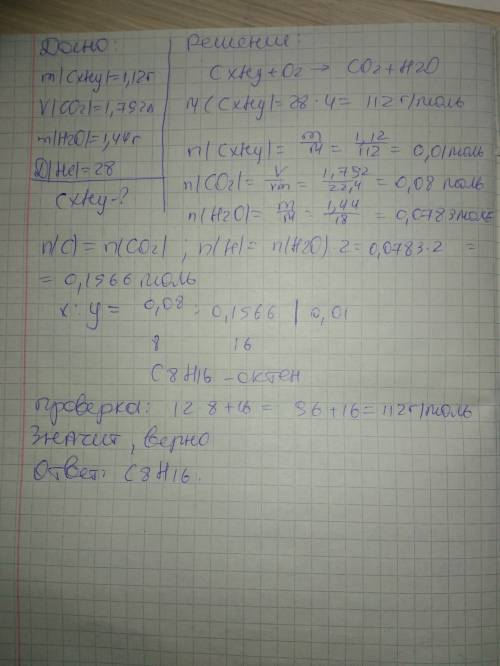 Дано:
m(CxHy)=1,12г
V(CO2)=1,792л
m(H2O)=1,44г
D(He)=28
CxHy-?
Решение:
CxHy+O2 → CO2+H2O
M(CxHy)=28·4= 112 г/моль
n(CxHy)= m/M = 1,12/112 = 0,01моль
n(CO2)= V/Vm = 1,792/22,4 = 0,08 моль
n(H2O)= m/M = 1,44/18 = 0,0783моль
n(C)= n(CO2) ; n(H)= n(H2O)·2=0,0783·2 =
= 0,1566 моль
x:y= 0,08 : 0,1566 | 0,01
8 16
C8H16 -октен
Проверка: 12·8+16= 96+16=112г/моль
Значит, верно
Ответ: C8H16.